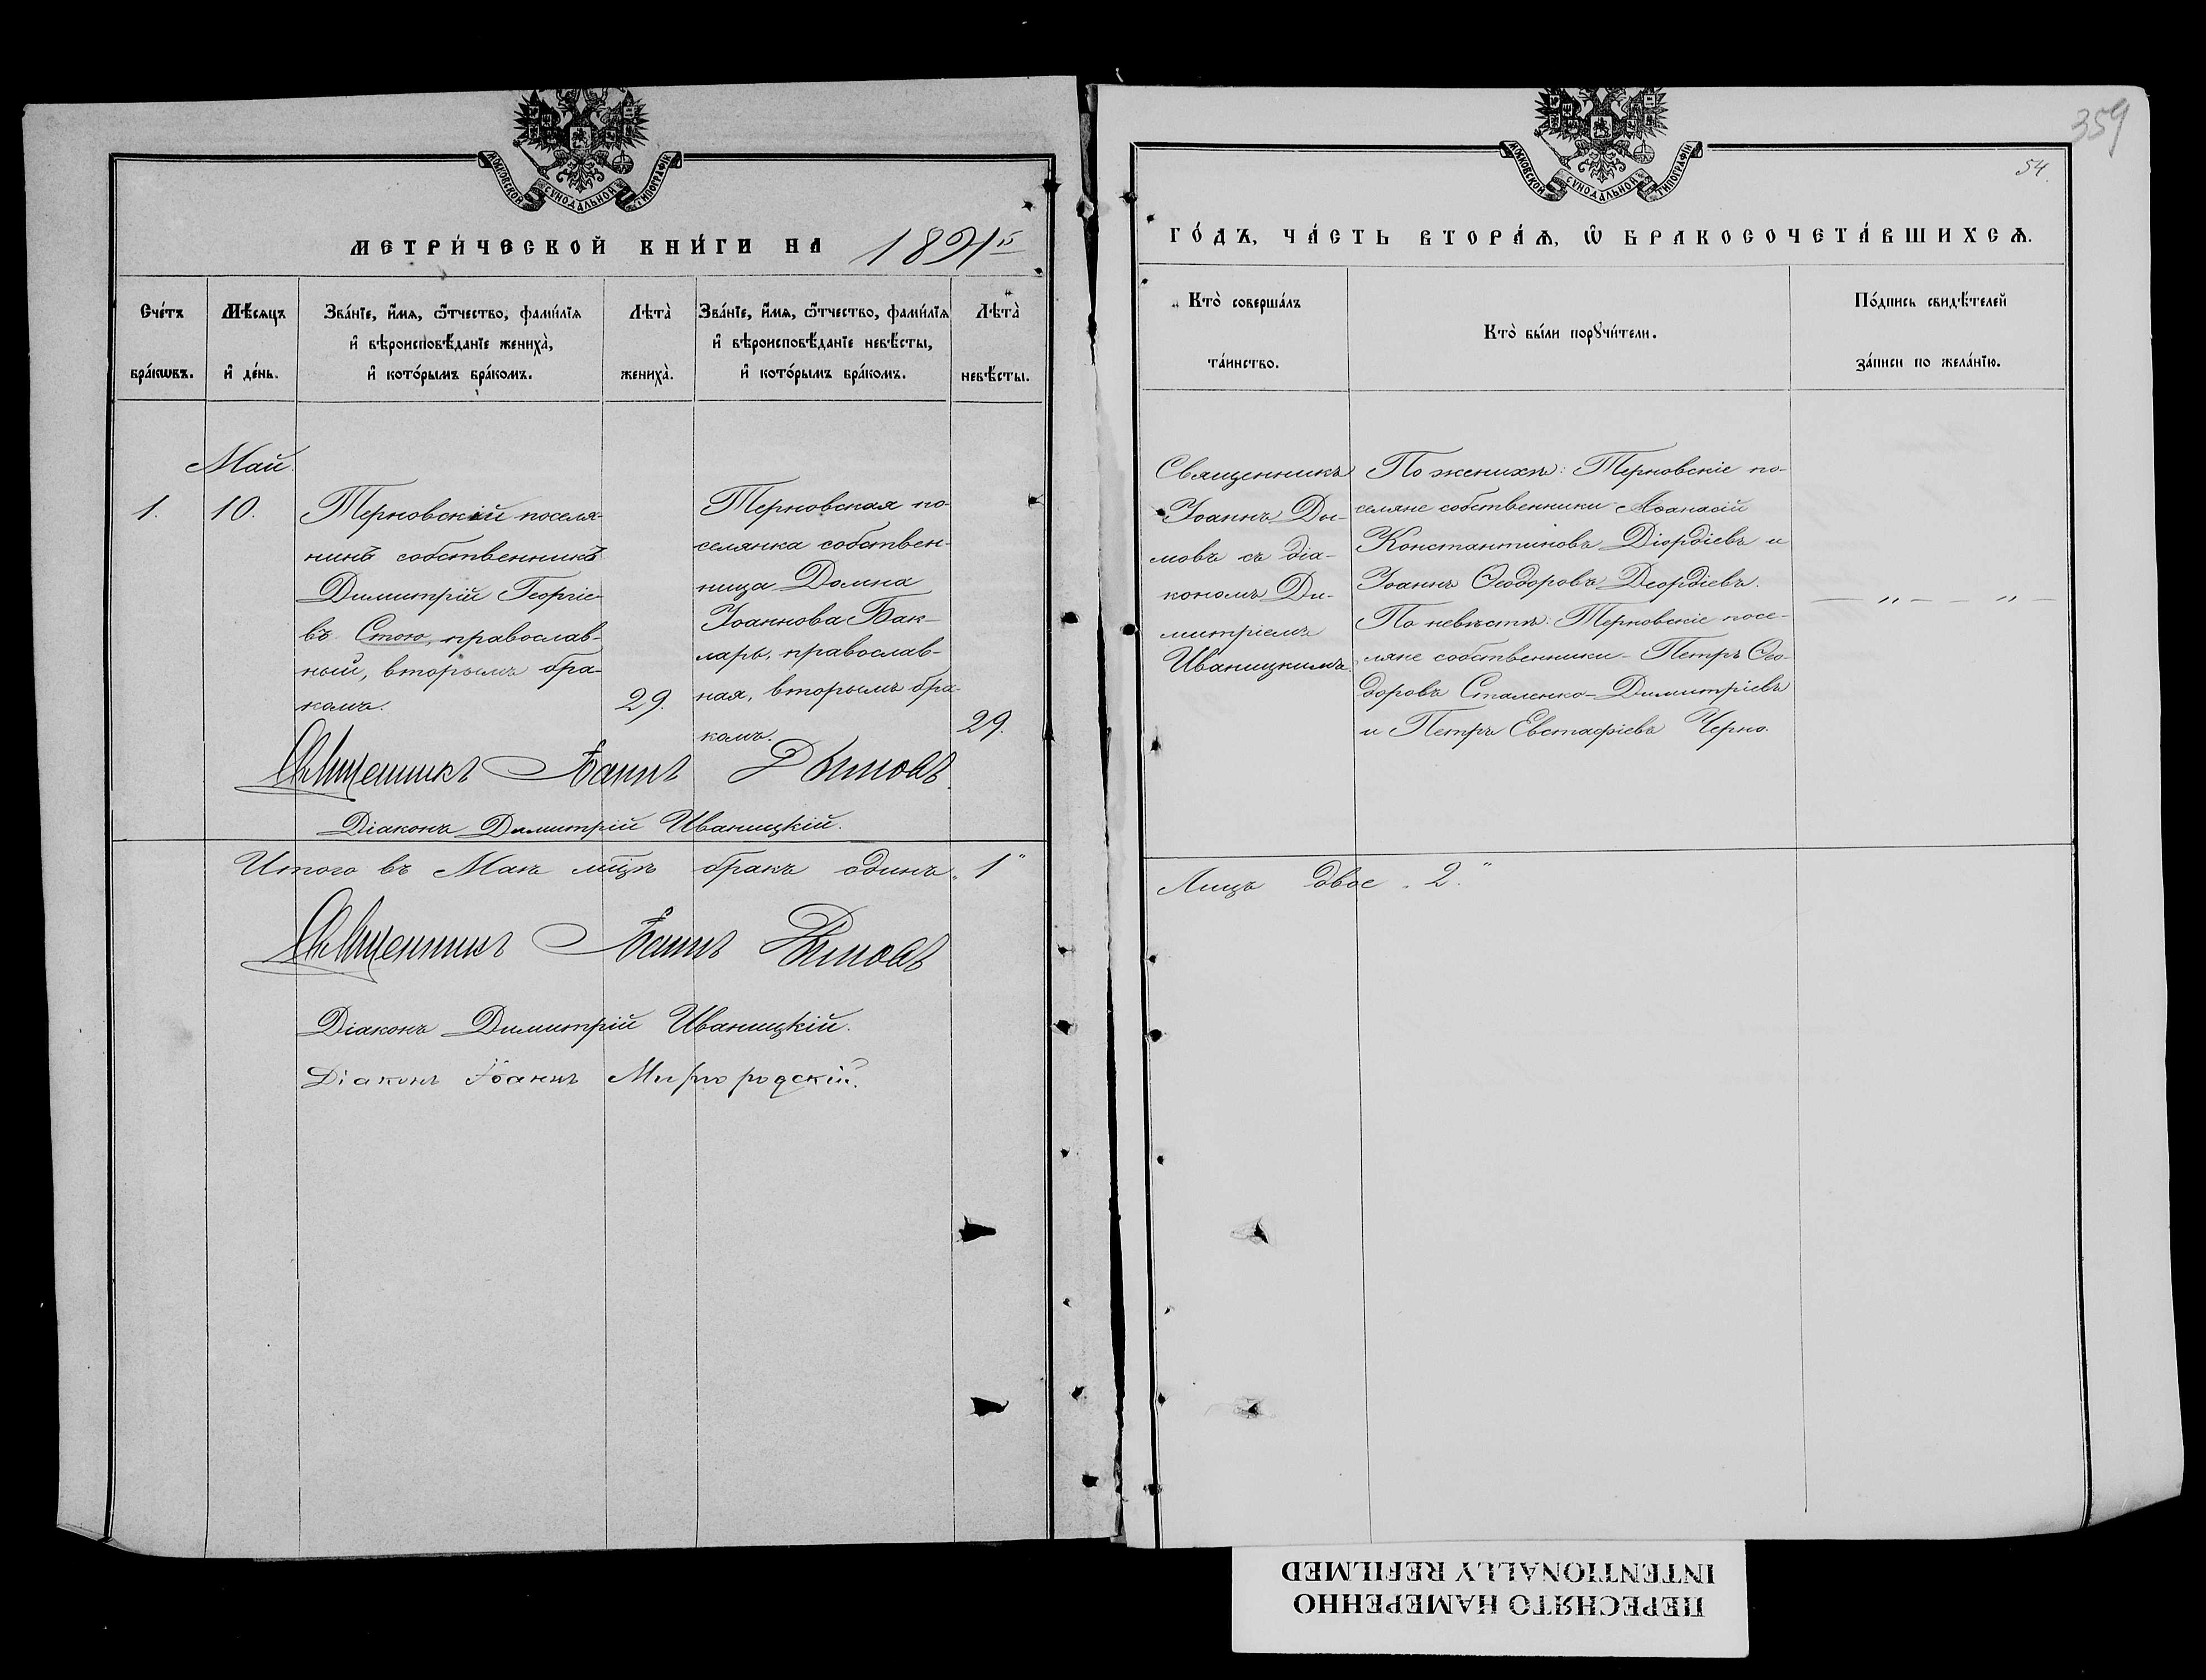 359
54.
МОСКОВСКОЙ СѴНОДАЛЬНОЙ ТИПОГРАФІИ
МОСКОВСКОЙ СѴНОДАЛЬНОЙ ТИПОГРАФІИ
МЕТРИ́ЧЕСКОЙ КНИ́ГИ НА 1891й
Сче́тъ
бра́кѡвъ.
Мѣ́сяцъ
и҆ де́нь.
Зва́нїе, и҆́мѧ, ѻ҆́тчество, фами́лїѧ
и҆ вѣроисповѣ́данїе жениха̀,
и҆ кото́рымъ бра́комъ.
Лѣта̀
жениха̀.
Зва́нїе, и҆́мѧ, ѻ҆́тчество, фами́лїѧ
и҆ вѣроисповѣ́данїе невѣ́сты,
и҆ кото́рымъ бра́комъ.
Лѣта̀
невѣ́сты.
Май.
1.
10.
Терновскій поселя-
нинъ собственникъ
Димитрій Георгіе-
въ Стою, православ-
ный, вторымъ бра-
комъ.
29.
Терновская по-
селянка собствен-
ница Домна
Іоаннова Бак-
ларь, православ-
ная, вторымъ бра-
комъ.
29.
Священникъ Іоаннъ Дымовъ
Діаконъ Димитрій Иваницкій.
Итого въ Маѣ мцѣ бракъ одинъ „1"
Священникъ Іоаннъ Дымовъ
Діаконъ Димитрій Иваницкій.
Діаконъ Іоаннъ Миргородскій.
ГО́ДЪ, ЧА́СТЬ ВТОРА́Ѧ, Ѡ҆ БРАКОСОЧЕТА́ВШИХСѦ.
Кто̀ соверша́лъ
та́инство.
Кто̀ бы́ли порꙋчи́тели.
По́дпись свидѣ́телей
за́писи по жела́нїю.
Священникъ
Іоаннъ Ды-
мовъ съ діа-
кономъ Ди-
митріемъ
Иваницкимъ.
По женихѣ: Терновскіе по-
селяне собственники Аѳанасій
Константиновъ Діордіевъ и
Іоаннъ Ѳеодоровъ Деордіевъ.
По невѣстѣ: Терновскіе посе-
ляне собственники - Петръ Ѳео-
доровъ Сталенко-Димитріевъ
и Петръ Евстафіевъ Черно.
— „ — — „ —
Лицъ двое „2."
ПЕРЕСНЯТО НАМЕРЕННО
INTENTIONALLY REFILMED